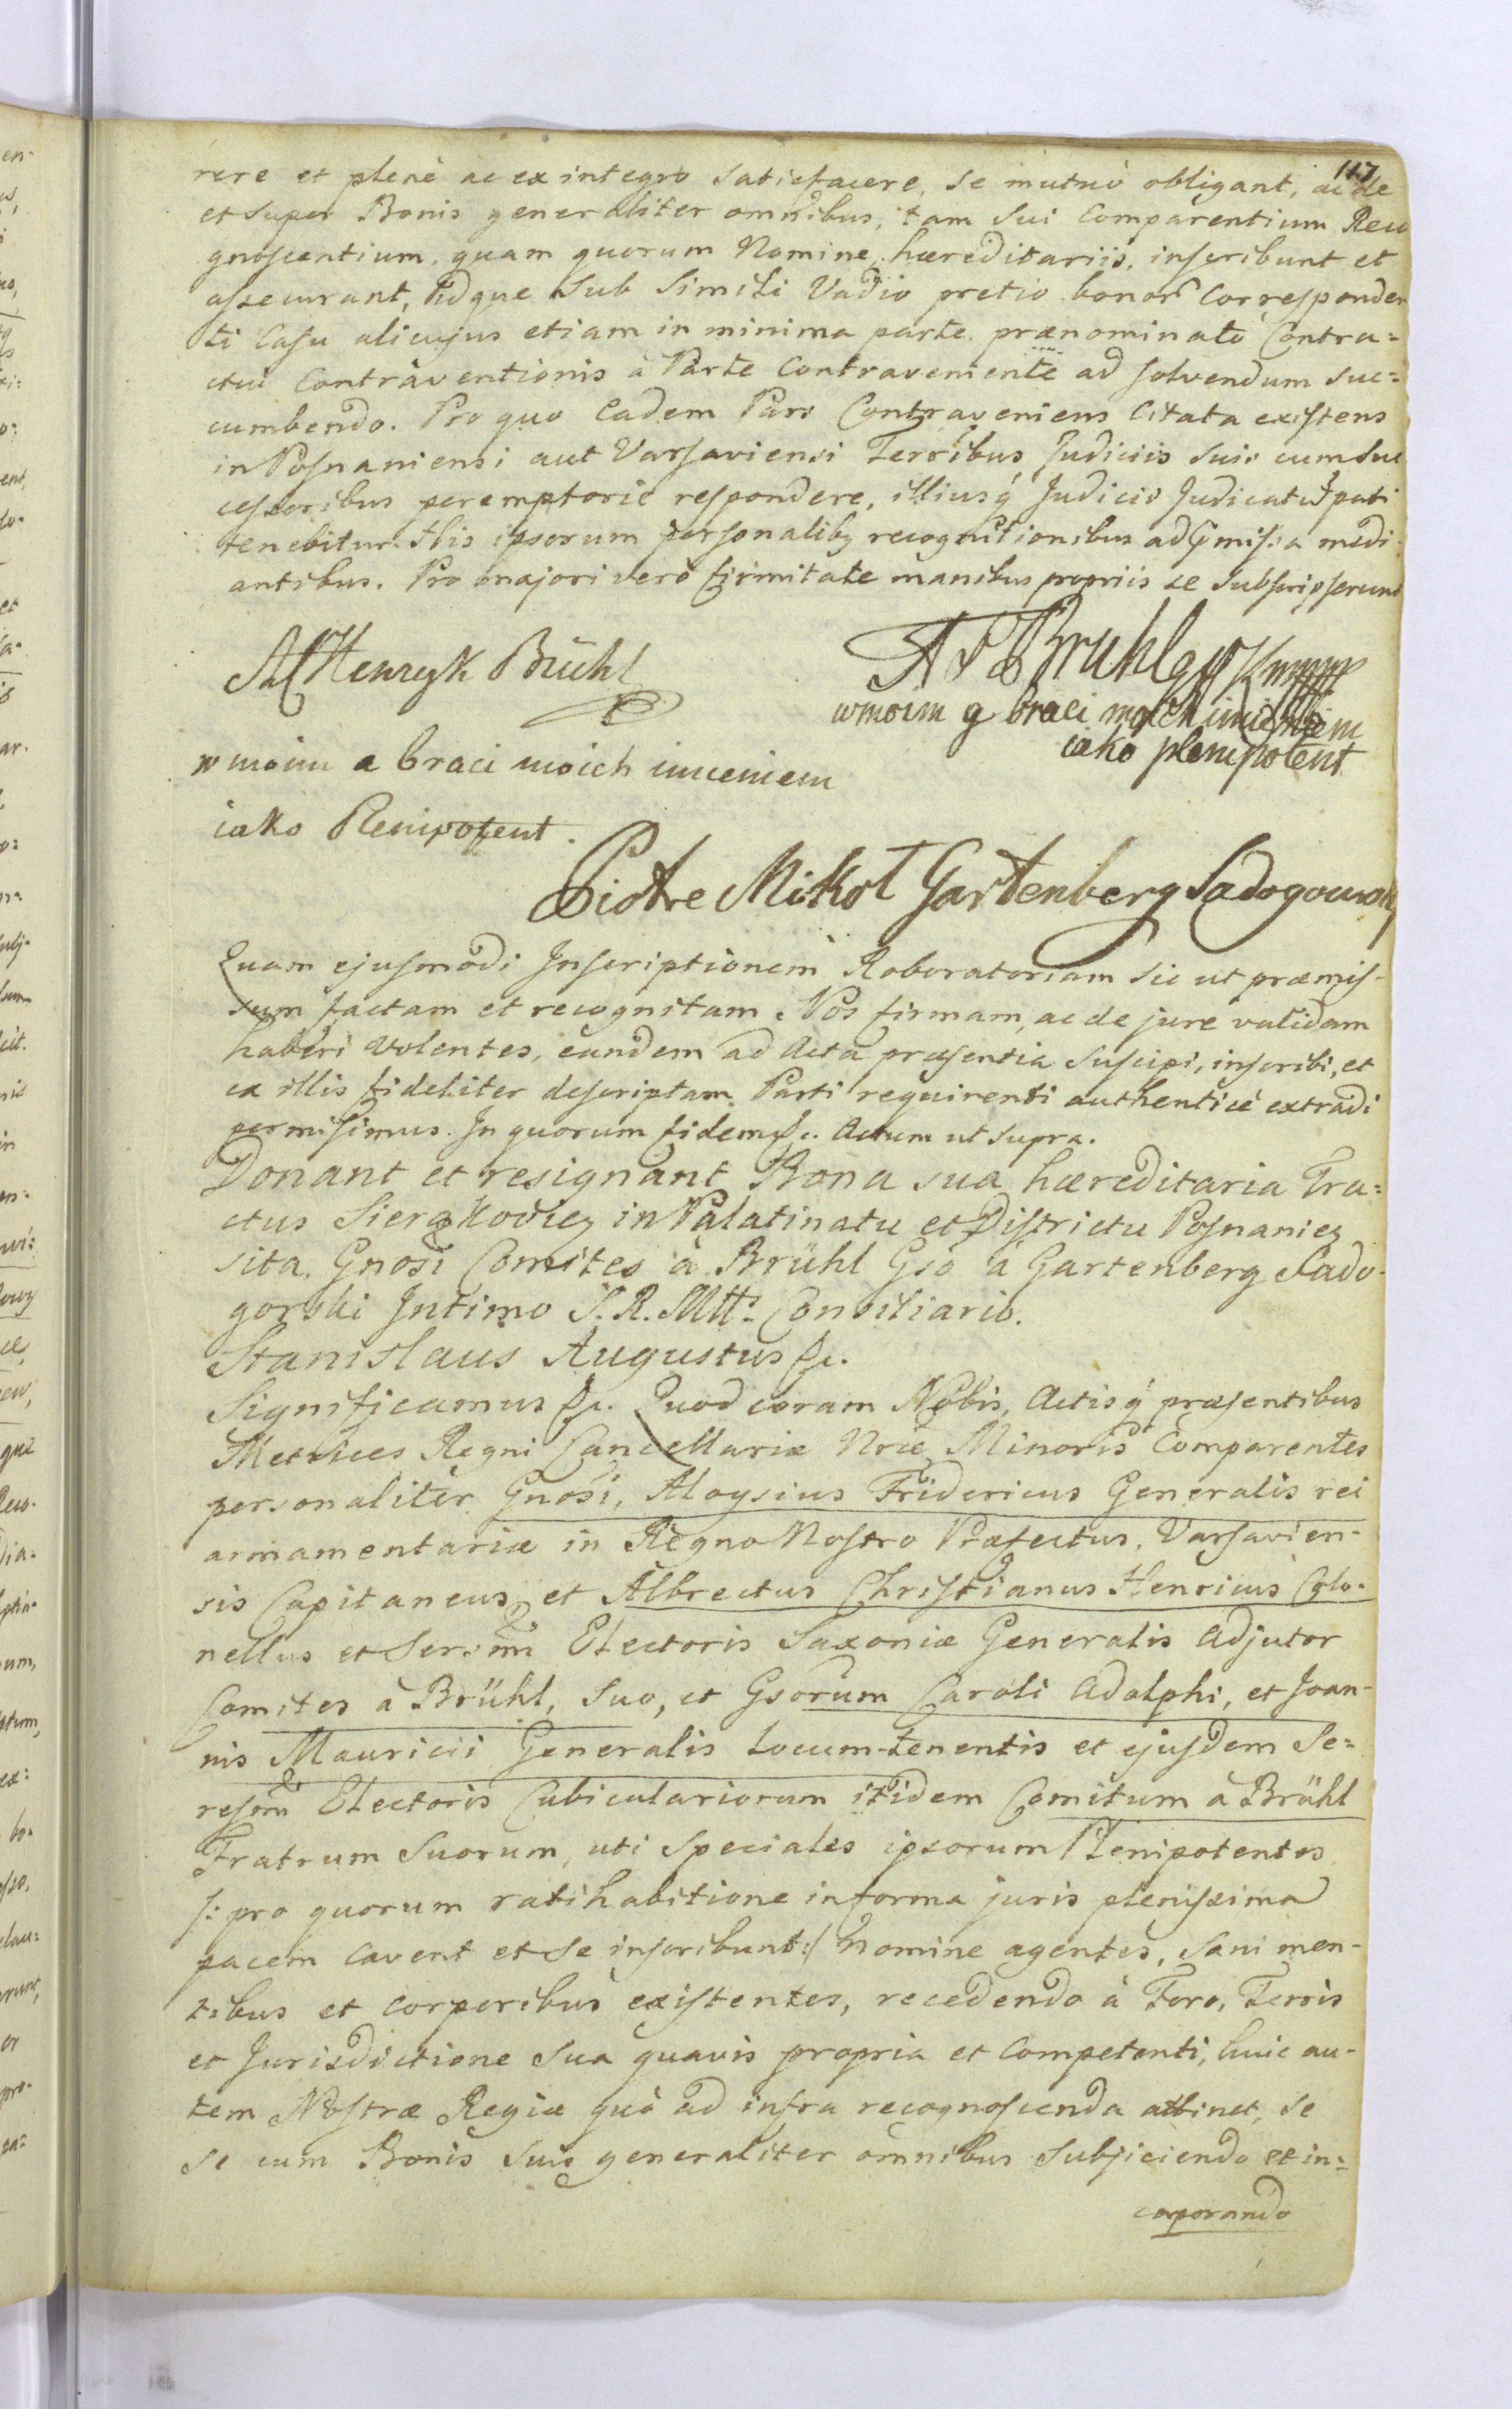 117
rere et plenè ac ex integro satisfacere, se mutuò obligant, ac de
et super Bonis generaliter omnibus, tam sui Comparentium Reco
gnoscentium, quam quorum Nomine, hæreditariis, inscribunt et
assecurant, idque sub simili Vadio pretio bonor Corresponden
ti Casu alicujus etiam in minima parte prænominato Contra=
ctui Contraventionis à Parte Contraveniente ad solvendum suc=
cumbendo. Pro quo Eadem Pars Contraveniens Citata existens
in Posnaniensi aut Varsaviensi Terribus Judiciis suis cum suc
cessoribus peremptorie respondere, illiusq́ Judicio Judicatu pati
tenebitur. His ipsorum personalibꝫ recognitionibus ad pmissa medi
antibus. Pro majori verò firmitate manibus propriis se subscripserunt
Henryk Brühl
w moim a braci moich imieniem
iako Plenipotent.
Brühl
w moim y braci moich imieniem
iako plenipotent
Piotre Mikoł Gartenberg Sadogowsky
Quam ejusmodi Inscriptionem Roboratoriam sic ut præmis-
sum factam et recognitam Nos firmam, ac de jure validam
haberi volentes, eandem ad Acta præsentia suscipi, inscribi, et
ex illis fideliter descriptam Parti requirenti authenticè extradi
permisimus. In quorum fidem &c. Actum ut supra.
Donant et resignant Bona sua hæreditaria Tra=
ctus Sierakoviez in Palatinatu et Districtu Posnanieꝫ
sita, Gnosi Comites à Brühl Gso à Gartenberg Sado-
gorski Intimo S. R. Mtt: Consiliario.
Stanislaus Augustus &c.
Significamus &c. Quod coram Nobis, Actisq́ præsentibus
Metrices Regni Cancellariæ Nræ Minoris Comparentes
personaliter Gnosi, Aloysius Fridericus Generalis rei
armamentariæ in Regno Nostro Præfectus, Varsavien-
sis Capitaneus et Albrectus Christianus Henricus Colo-
nellus et Ser:mi Electoris Saxoniæ Generalis Adjutor
Comites à Brühl, Suo, et Gsorum Caroli Adolphi, et Joan-
nis Mauricii Generalis Locum-tenentis et ejusdem Se=
resmi Electoris Cubiculariorum itidem Comitum à Brühl
Fratrum Suorum, uti Speciales ipsorum Plenipotentes
/: pro quorum ratihabitione in forma juris plenissima
pacem cavent et se inscribunt :/ Nomine agentes, sani men-
tibus et corporibus existentes, recedendo à Foro, Terris
et Jurisdictione Sua quavis propria et Competenti, huic au-
tem Nostræ Regiæ quò ad infra recognoscenda attinet, se
se cum Bonis suis generaliter omnibus subjiciendo et in=
corporando